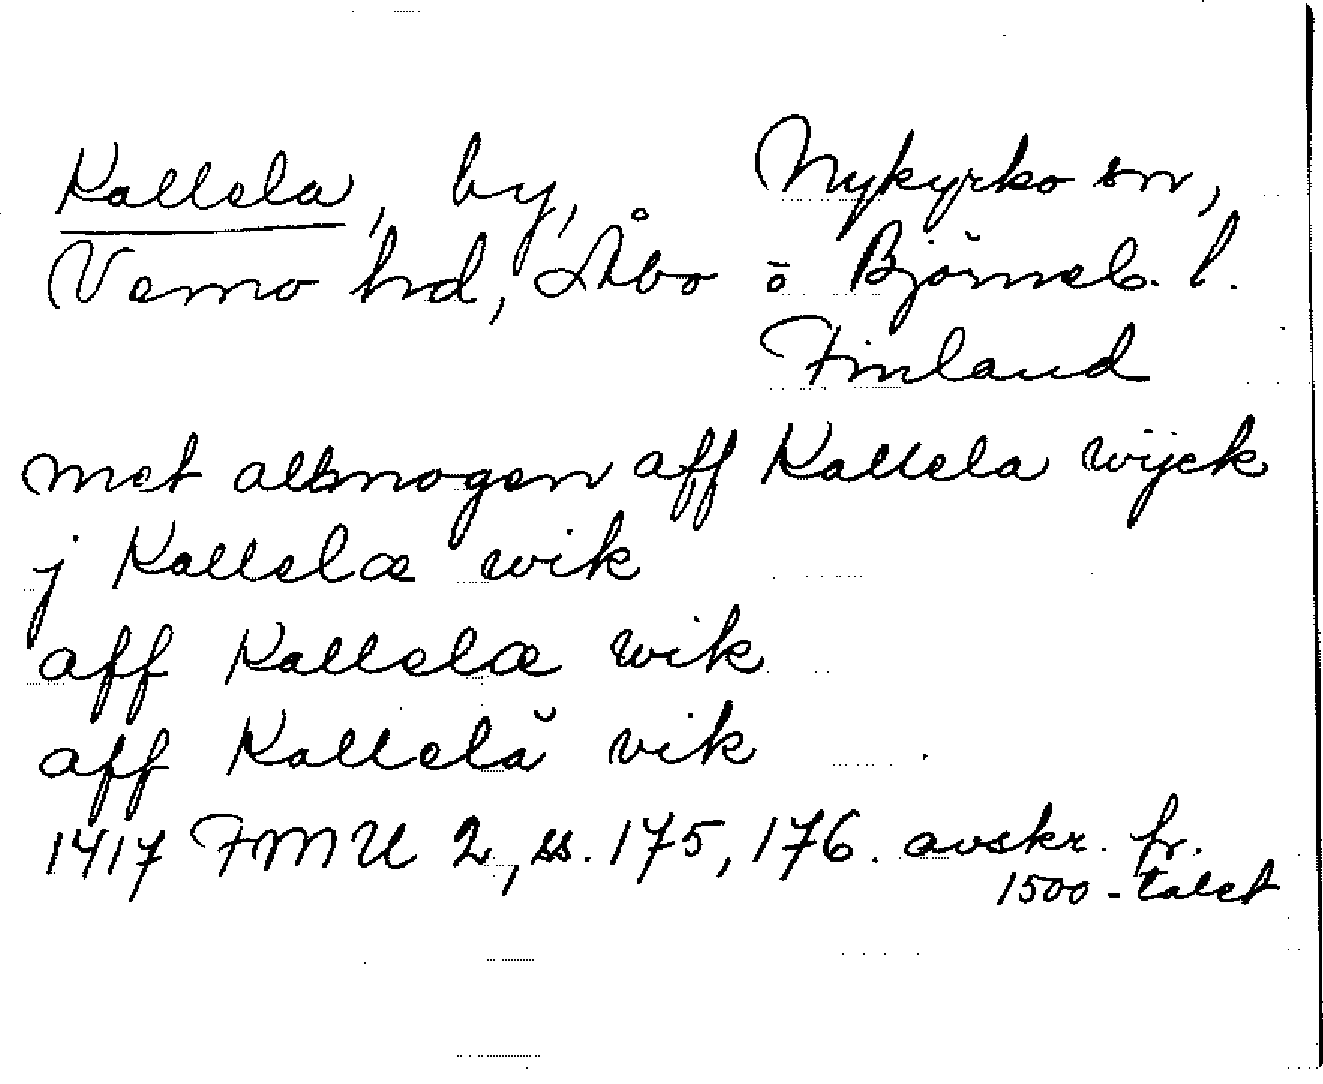 Kallela, by, Nykyrko sn,
Vemo hd, Åbo o Björneb. l.
Finland
met almogen aff Kallela wijck
j Kallelæ wik
aff Kallelæ wik
aff Kallelä vik
1417 FMU 2, ss. 175, 176. avskr. fr.
1500-talet